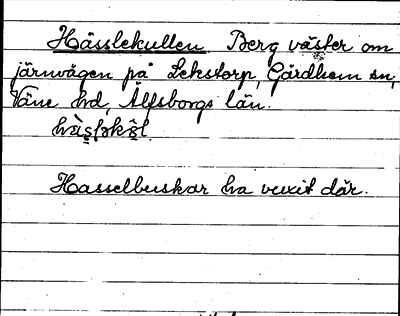 Hässlekullen Berg väster om
järnvägen på Lekstorp, Gärdhem sn,
Väne hd, Älfsborgs län.
Hasselbuskar ha vuxit där.